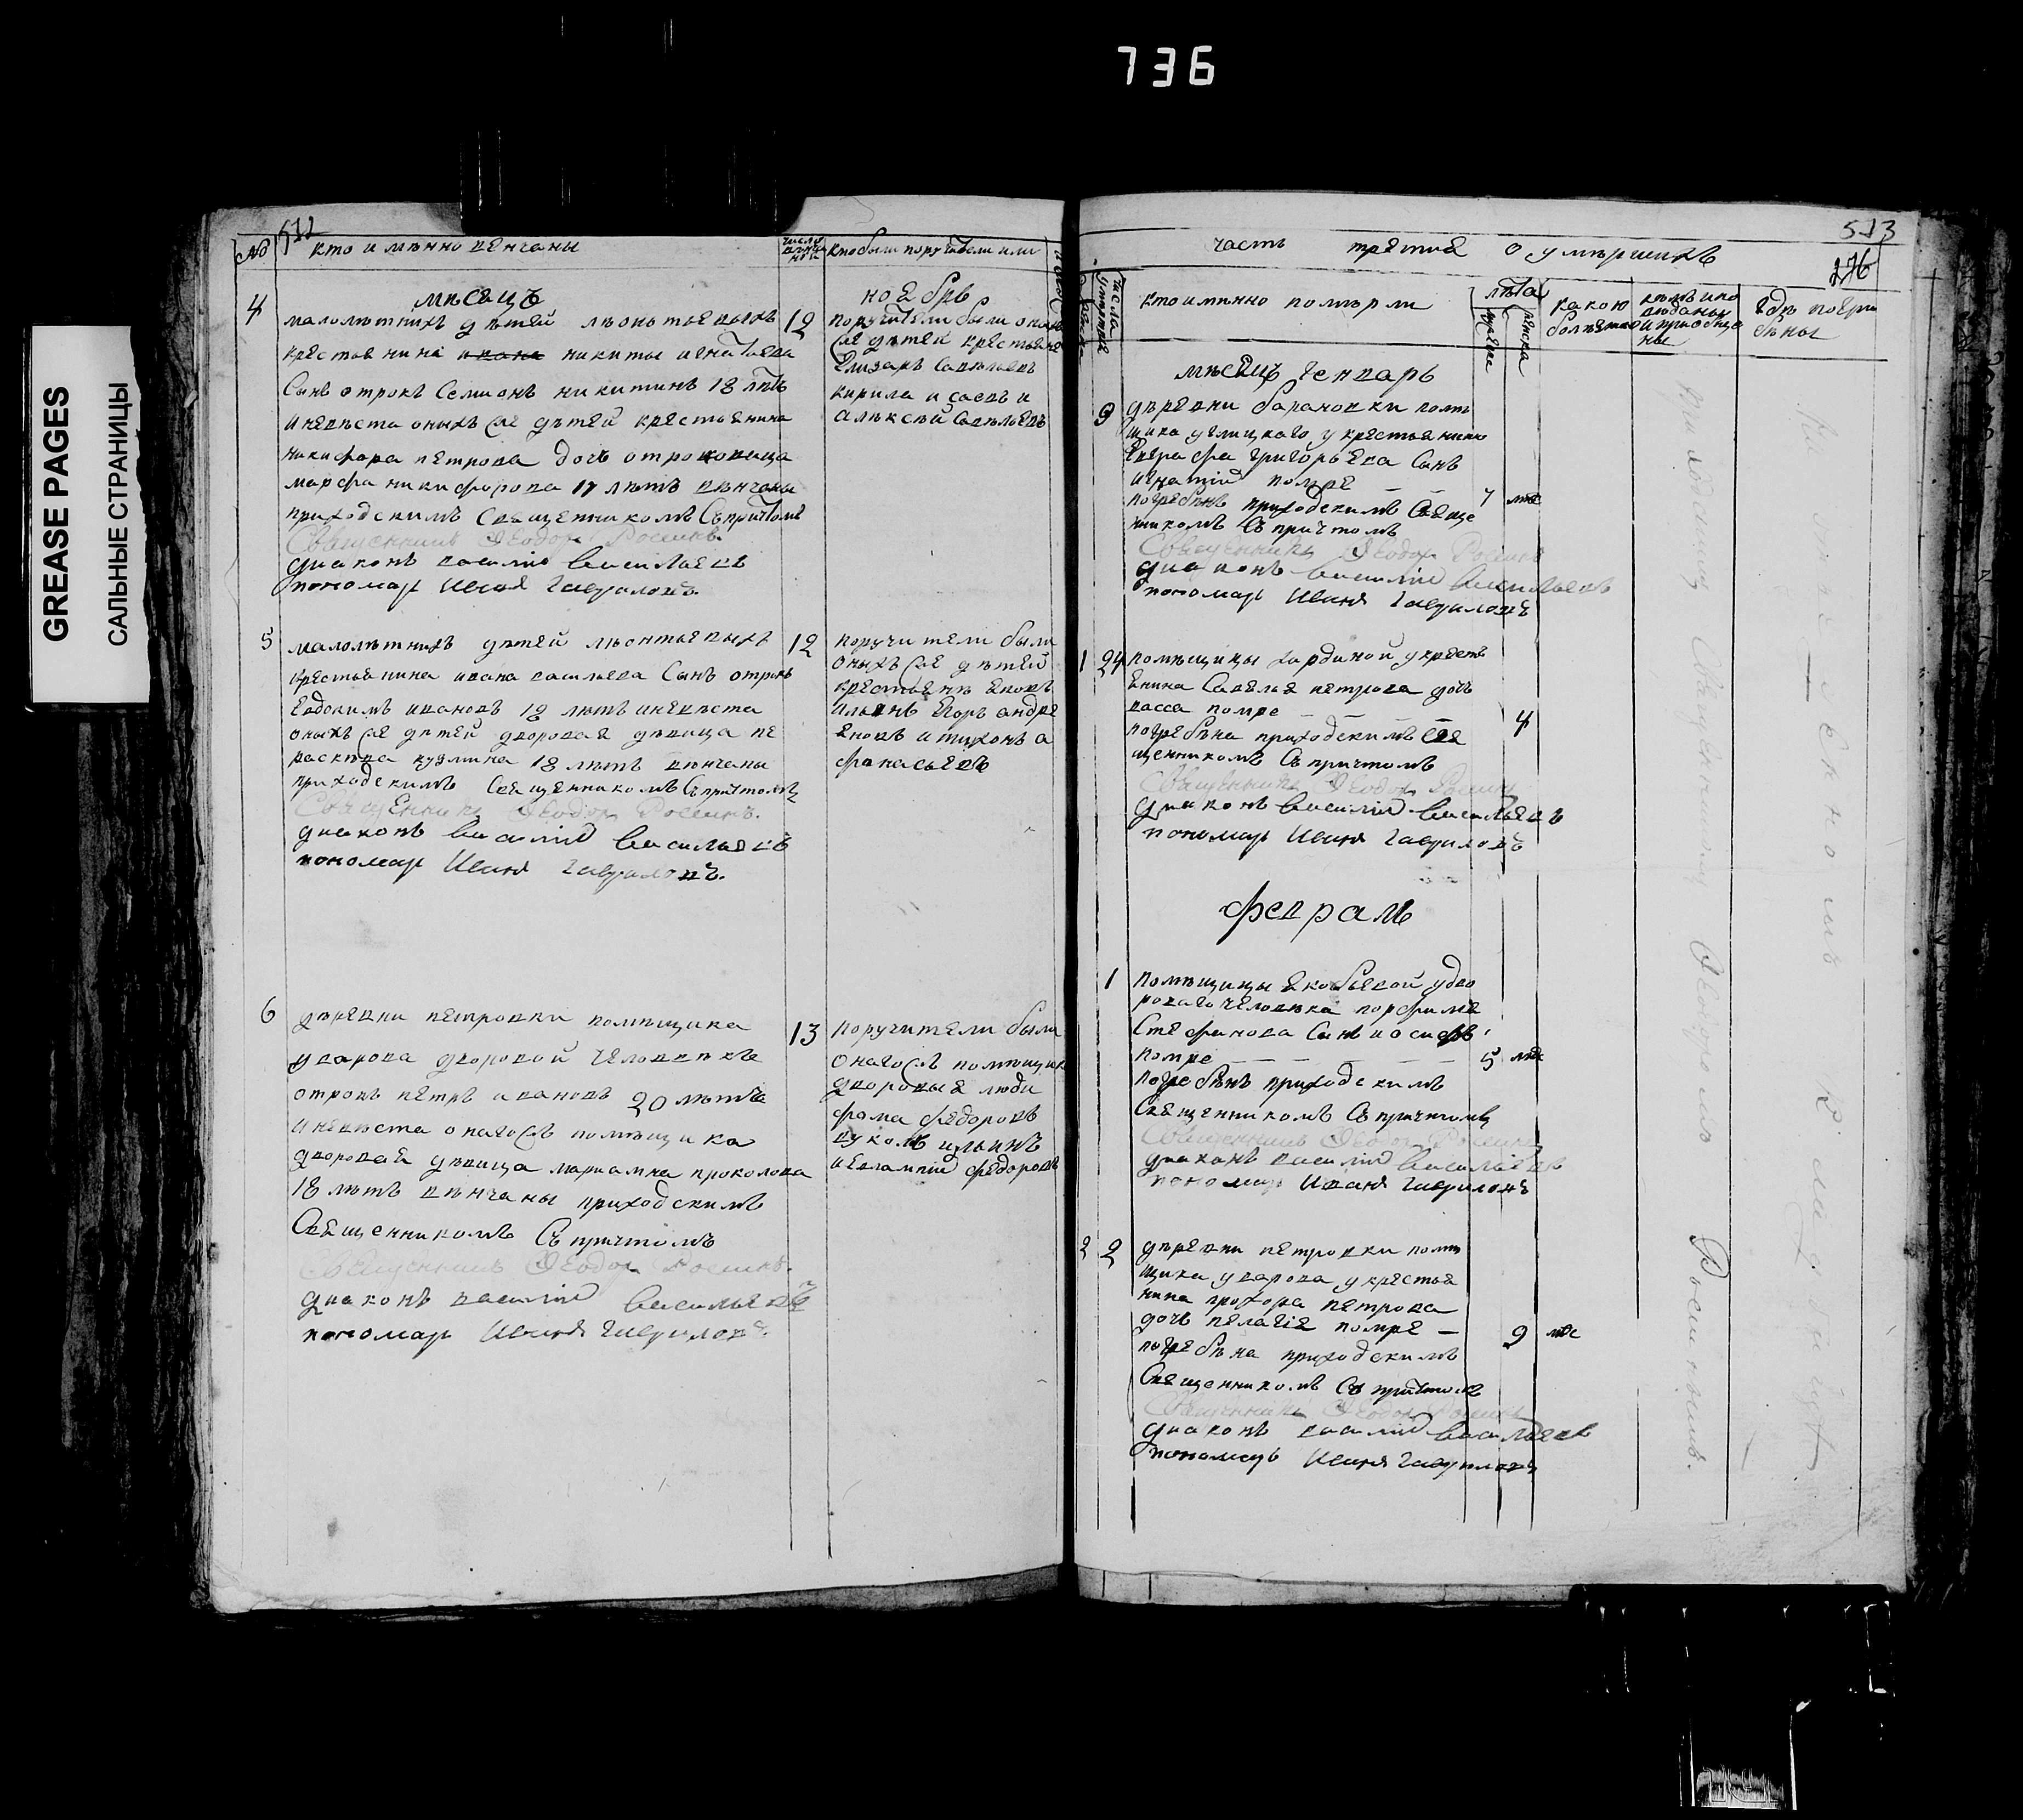 736
GREASE PAGES
САЛЬНЫЕ СТРАНИЦЫ
512
№
кто имѣнно венчаны
число
кто были поручители или
мѣсецъ
ноебрь
4
малолѣтнихъ дѣтей лѣонътьевыхъ
крестьенина никиты игнатьева
Сынъ отрокъ Семионъ никитинъ 18 лѣтъ
иневѣста оныхъ же дѣтей крестьенина
никифора петрова дочь отроковица
марфа никифорова 17 лѣтъ венчаны
приходскимъ Священникомъ Съпричтомъ
Священникъ Феодоръ Росинъ.
диаконъ василий Васильевъ
пономарь Иванъ Гавриловъ.
12
поручители были оныхъ
же дѣтей крестьяне
Елизаръ Савельевъ
кирила исаевъ и
алѣксѣй Савѣльевъ
5
малолѣтнихъ дѣтей лѣонтьевыхъ
крестьенина ивана васильева Сынъ отрокъ
Евдокимъ ивановъ 18 лѣтъ иневѣста
оныхъ же дѣтей дворовая дѣвица пе
раскева кузмина 18 лѣтъ венчаны
приходскимъ Священникомъ Съпричтомъ
Священникъ Феодоръ Росинъ.
диаконъ Василий Васильевъ
пономарь Иванъ Гавриловъ.
12
поручители были
оныхъ же дѣтей
крестьенѣ
Егоръ андре
еновъ итихонъ а
фанасьевъ
6
дѣревни петровки помѣщика
уварова дворовой человѣкъ
отрокъ петръ ивановъ 20 лѣтъ
иневѣста онагожъ помѣщика
дворовая дѣвица мариамна проколова
18 лѣтъ вѣнчаны приходскимъ
Священникомъ Съпричтомъ
Священникъ Феодоръ Росинъ.
диаконъ василий Васильевъ
пономарь Иванъ Гавриловъ.
13
поручители были
онагожъ помѣщик
дворовые люди
фома федоровъ
вуколъ ильинъ
иевлампий федоровъ
513
276
часть третие о умѣршихъ
кто имянно помѣрли
лѣта
какою
болѣзнию
гдѣ погри
бѣны
мѣсецъ генварь
9
дѣревни барановки помѣ
щика углицкаго укрестьенина
Евграфа григорьева Сынъ
игнатий помре
погребенъ приходскимъ Свяще
нникомъ Съпричтомъ
7
Священникъ Феодоръ Росинъ
диаконъ Василий Васильевъ
пономарь Иванъ Гавриловъ
1 24
помѣщицы хардиной укресть
енина Савелья петрова дочь
васса помре
погребена приходскимъ Свя
щенникомъ Съпричтомъ
4
Священникъ Феодоръ Росинъ
диаконъ Василий Васильевъ
пономарь Иванъ Гавриловъ
февраль
1
помѣщицы Екобьевой удво
роваго человѣка порфиме
Стефанова Сынъ иосифъ
помре
5
погребенъ приходскимъ
Священникомъ Съпричтомъ
Священникъ Феодоръ Росинъ
диаконъ василий Васильевъ
пономарь Иванъ Гавриловъ
2 2
дѣревни петровки помѣ
щика уварова укрестья
нина прохора петрова
дочь пелагие помре
9
погребена приходскимъ
Священникомъ Съпричтомъ
Священникъ Феодоръ Росинъ
диаконъ василий Васильевъ
пономарь Иванъ Гавриловъ
Священникомъ Феодоромъ Росинымъ.